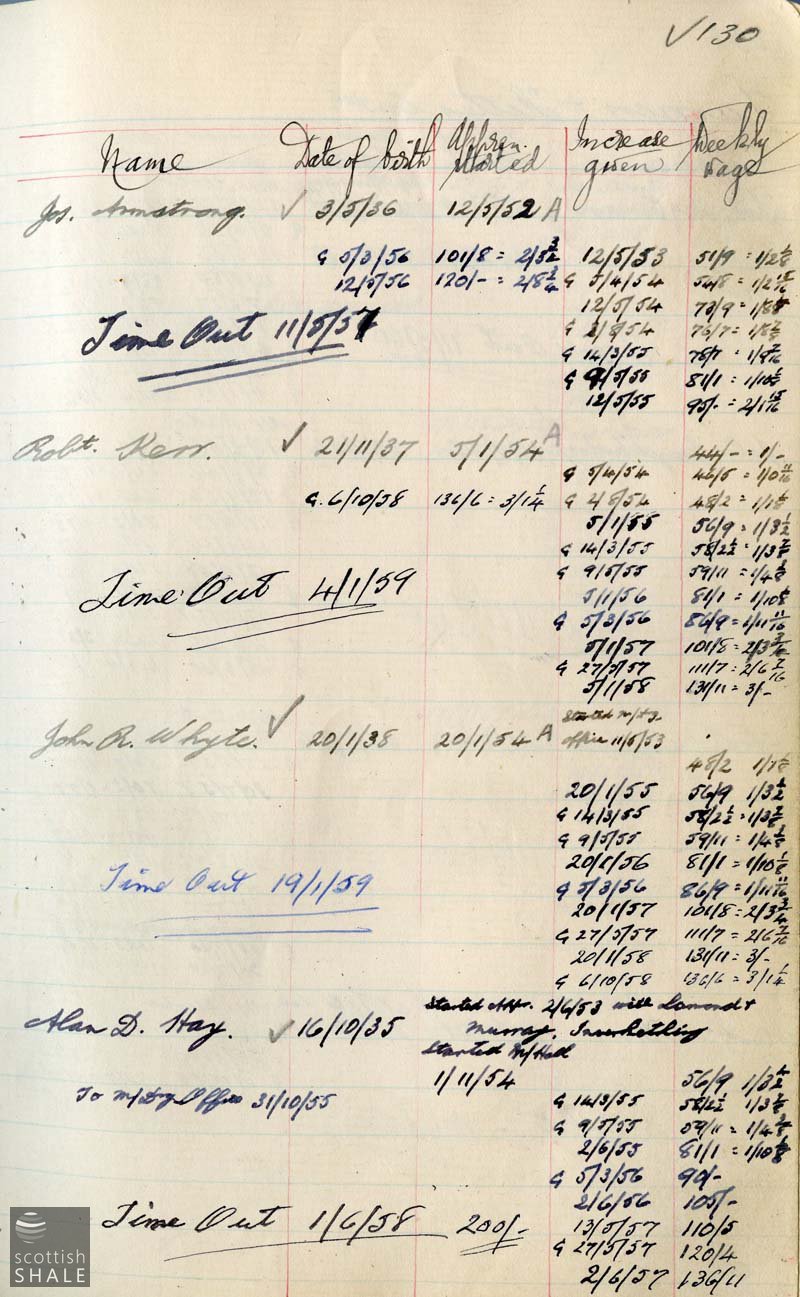 √130
Name Date of birth Appren. started Increase given Weekly wage
Jos. Armstrong. ✓ 3/5/36 12/5/52 A
G 5/3/56 101/8 = 2/5½ 12/5/53 51/9 = 1/2⅛
12/5/56 120/- = 2/8¾ G 5/4/54 54/8 = 1/2
12/5/54 73/9
Time Out 11/5/57 G 2/8/54 76/7
G 14/3/55 78/7
G 9/5/55 81/1 = 1/10⅛
12/5/55 95/- = 2/1 15/16
Robt. Kerr. ✓ 21/11/37 5/1/54 A 44/- = 1/-
G 5/4/54 46/5 = 1/0 11/16
G. 6/10/58 136/6 = 3/1¼ G 2/8/54 48/2 = 1/1⅛
5/1/55 56/9 = 1/3½
G 14/3/55 58/2½ = 1/3⅞
G 9/5/55 59/11 = 1/4⅜
Time Out 4/1/59 5/1/56 81/1 = 1/10⅛
G 5/3/56 86/9 = 1/11 11/16
5/1/57 101/8 = 2/3¾
G 27/5/57 111/7 = 2/6 7/16
5/1/58 131/11 = 3/-
John R. Whyte. ✓ 20/1/38 20/1/54 A Started M/Dg. office 11/5/53
48/2 1/1⅛
20/1/55 56/9 1/3½
G 14/3/55 58/2½ = 1/3⅞
G 9/5/55 59/11 = 1/4⅜
20/1/56 81/1 = 1/10⅛
Time Out 19/1/59 G 5/3/56 86/9 = 1/11 11/16
20/1/57 101/8 = 2/3¾
G 27/5/57 111/7 = 2/6 7/16
20/1/58 131/11 = 3/-
G 6/10/58 136/6 = 3/1¼
Started Appr. 2/6/53 with Lamond &
Alan D. Hay. ✓ 16/10/35 Murray, Inverkeithing
Started M/Hall
1/11/54 56/9 1/3½
To M/Dg Office 31/10/55 G 14/3/55 58/2½ 1/3⅞
G 9/5/55 59/11 = 1/4⅜
2/6/55 81/1 = 1/10⅛
G 5/3/56 90/-
2/6/56 105/-
Time Out 1/6/58 200/- 13/5/57 110/5
G 27/5/57 120/4
2/6/57 136/11
scottish
SHALE